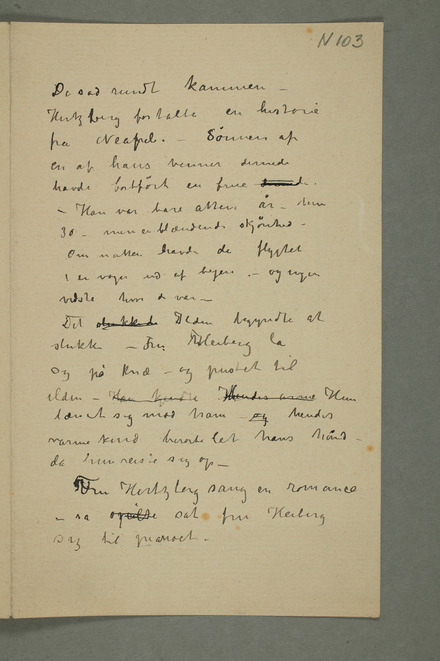 N 103
De sad rundt kaminen –
Hertzberg fortalte en historie
fra Neapel. – Sønnen af
en af hans venner dernede
havde bortført en frue
– Han var bare atten år – hun
30 – men en blændende skjønhed –
Om natten havde de flygtet
i en vogn ud af byen. – og ingen
vidste hvor de var –
Ilden begyndte at
slukke – Fru Heiberg la
sig på knæ – og pustet til
ilden – Han kjendte Hendes arme Hun
lænet sig mod ham – og hendes
varme kind berørte let hans hånd –
da hun reiste sig op –
Fru Hertzberg sang en romance
– sa spilte sat fru Heiberg
sig til pianoet.